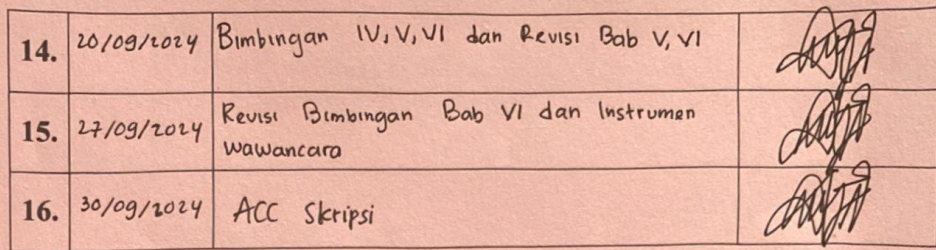 14. 20/09/2024 Bimbingan IV, V, VI dan Revisi Bab V, VI
15. 27/09/2024 Revisi Bimbingan Bab VI dan Instrumen
wawancara
16. 30/09/2024 ACC Skripsi